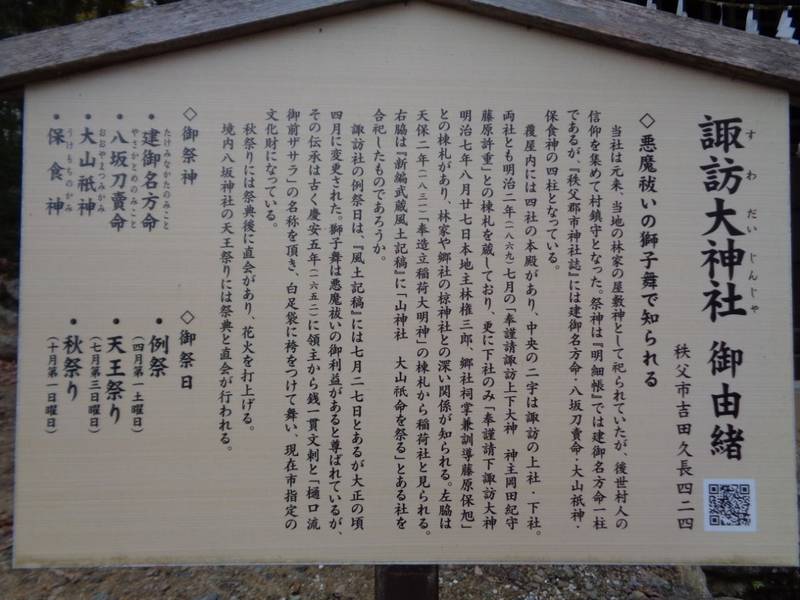 諏訪大神社 御由緒
すわだいじんじゃ
秩父市吉田久長四二四
◇悪魔祓いの獅子舞で知られる
当社は元来、当地の林家の屋敷神として祀られていたが、後世村人の
信仰を集めて村鎮守となった。祭神は『明細帳』では建御名方命一柱
であるが、『秩父郡市神社誌』には建御名方命・八坂刀賣命・大山祇神・
保食神の四柱となっている。
覆屋内には四社の本殿があり、中央の二宇は諏訪の上社・下社。
両社とも明治二年(一八六九)七月の「奉謹請諏訪上下大神 神主岡田紀守
藤原許重」との棟札を蔵しており、更に下社のみ「奉謹請下諏訪大神
明治七年八月廿七日本地主林権三郎、郷社祠掌兼訓導藤原保旭」
との棟札があり、林家や郷社の椋神社との深い関係が知られる。左脇は
天保二年(一八三一)「奉造立稲荷大明神」の棟札から稲荷社と見られる。
右脇は『新編武蔵風土記稿』に「山神社 大山祇命を祭る」とある社を
合祀したものであろうか。
諏訪社の例祭日は、『風土記稿』には七月二七日とあるが大正の頃
四月に変更された。獅子舞は悪魔祓いの御利益があると尊ばれているが、
その伝承は古く慶安五年(一六五二)に領主から銭一貫文剌と「樋口流
御前ザサラ」の名称を頂き、白足袋に袴をつけて舞い、現在市指定の
文化財になっている。
秋祭りには祭典後に直会があり、花火を打上げる。
境内八坂神社の天王祭りには祭典と直会が行われる。
◇御祭神
・建御名方命
たけみなかたのみこと
・八坂刀賣命
やさかとめのみこと
・大山祇神
おおやまつみかみ
・保食神
うけもちのかみ
◇御祭日
・例祭
(四月第一土曜日)
・天王祭り
(七月第三日曜日)
・秋祭り
(十月第一日曜日)